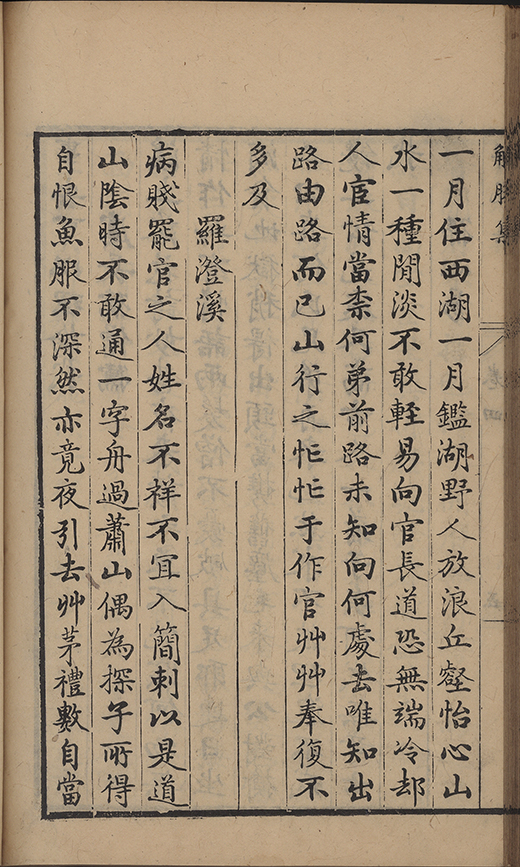 解脫集
卷四
一月住西湖一月鑑湖野人放浪丘壑怡心山
水一種閒淡不敢輕易向官長道恐無端冷却
人宦情當柰何弟前路未知向何處去唯知出
路由路而已山行之忙忙于作官艸艸奉復不
多及
羅澄溪
病賤罷官之人姓名不祥不宜入簡刺以是道
山陰時不敢通一字舟過蕭山偶為探子所得
自恨魚服不深然亦竟夜引去艸茅禮數自當